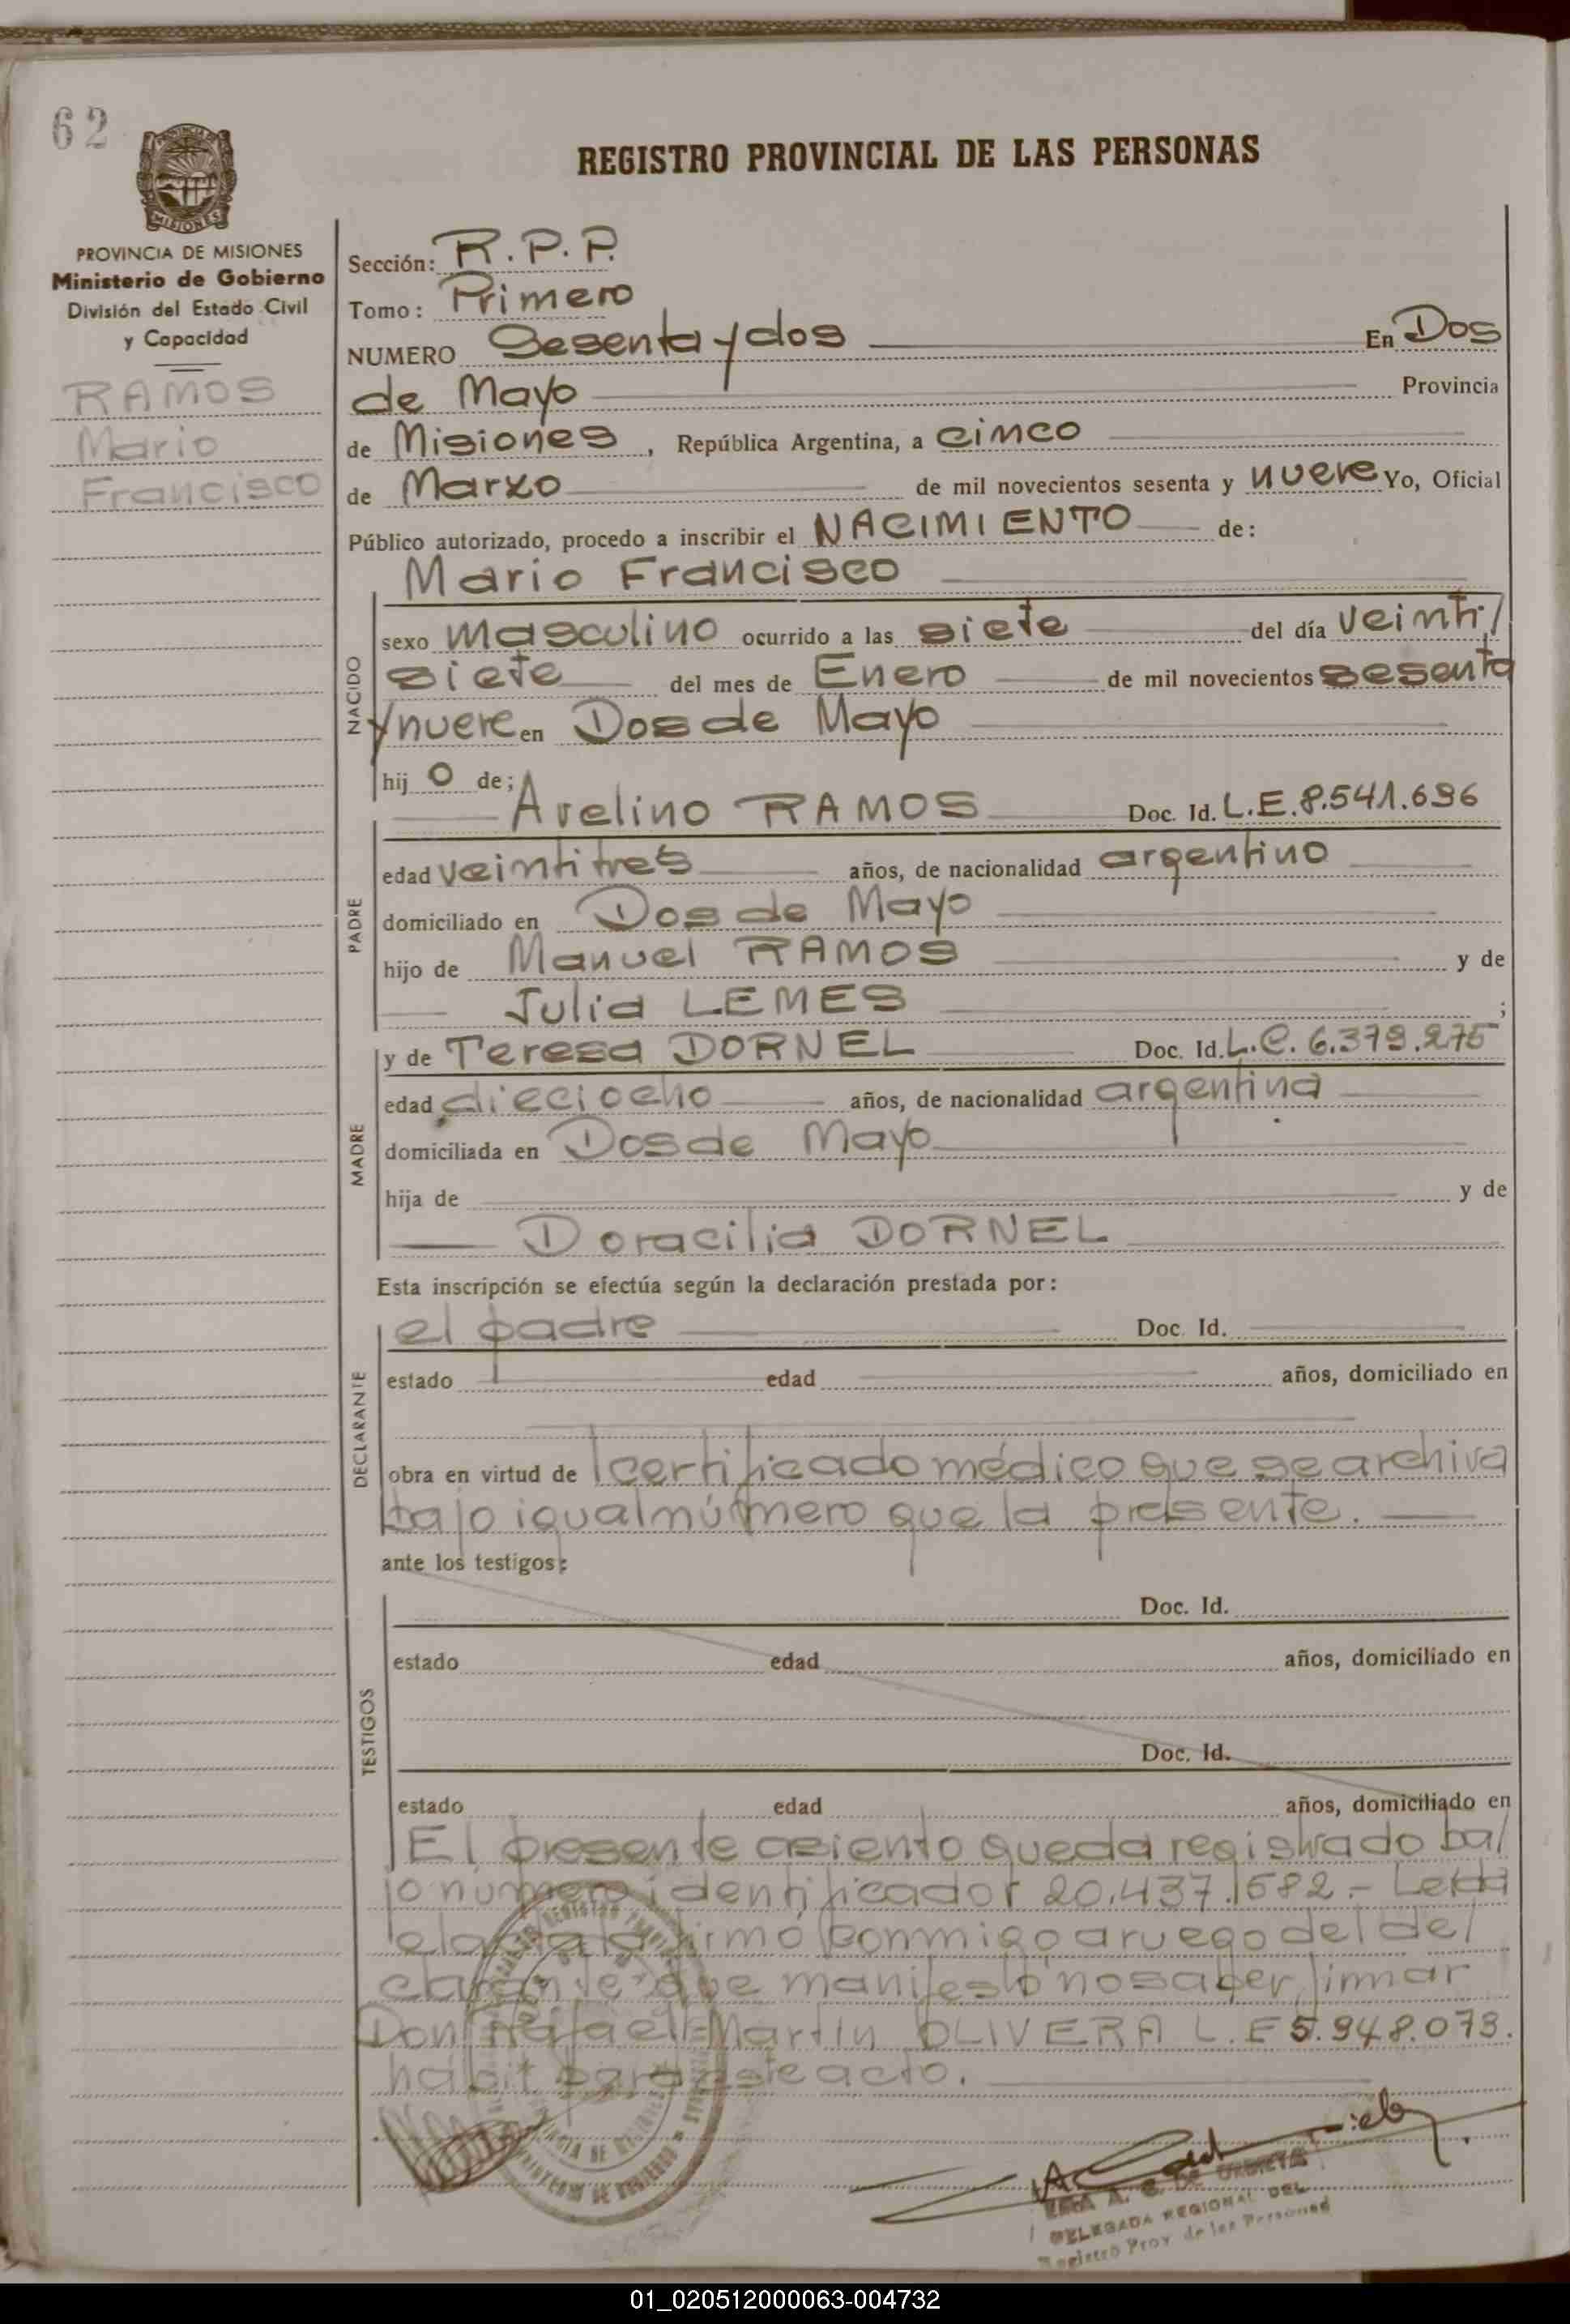 62
REGISTRO PROVINCIAL DE LAS PERSONAS
MISIONES
PROVINCIA DE MISIONES
Ministerio de Gobierno
División del Estado Civil
y Capacidad
RAMOS
Mario
Francisco
Sección: R.P.P.
Tomo: Primero
NUMERO Sesenta y dos En Dos
de Mayo Provincia
de Misiones, República Argentina, a cinco
de Marzo de mil novecientos sesenta y nueve Yo, Oficial
Público autorizado, procedo a inscribir el NACIMIENTO de:
Mario Francisco
NACIDO
sexo masculino ocurrido a las siete del día veinti/
siete del mes de Enero de mil novecientos sesenta
y nueve en Dos de Mayo
hij o de;
Avelino RAMOS Doc. Id. L.E. 8.541.696
PADRE
edad veintitres años, de nacionalidad argentino
domiciliado en Dos de Mayo
hijo de Manuel RAMOS y de
Julia LEMES ;
y de Teresa DORNEL Doc. Id. L.C. 6.379.275
MADRE
edad dieciocho años, de nacionalidad argentina
domiciliada en Dos de Mayo
hija de y de
Doracilia DORNEL
Esta inscripción se efectúa según la declaración prestada por:
el padre Doc. Id.
DECLARANTE
estado edad años, domiciliado en
obra en virtud de certificado médico que se archiva
bajo igual número que la presente.
ante los testigos:
Doc. Id.
TESTIGOS
estado edad años, domiciliado en
Doc. Id.
estado edad años, domiciliado en
El presente asiento queda registrado ba/
jo número identificador 20.437.682.- Leida
el acta firmó conmigo a ruego del de/
clarante que manifestó no saber firmar
Don Rafael Martin OLIVERA L.E 5.948.073.
habil para este acto.
DELEGADA REGIONAL DEL
Registro Prov de las Personas
01_020512000063-004732